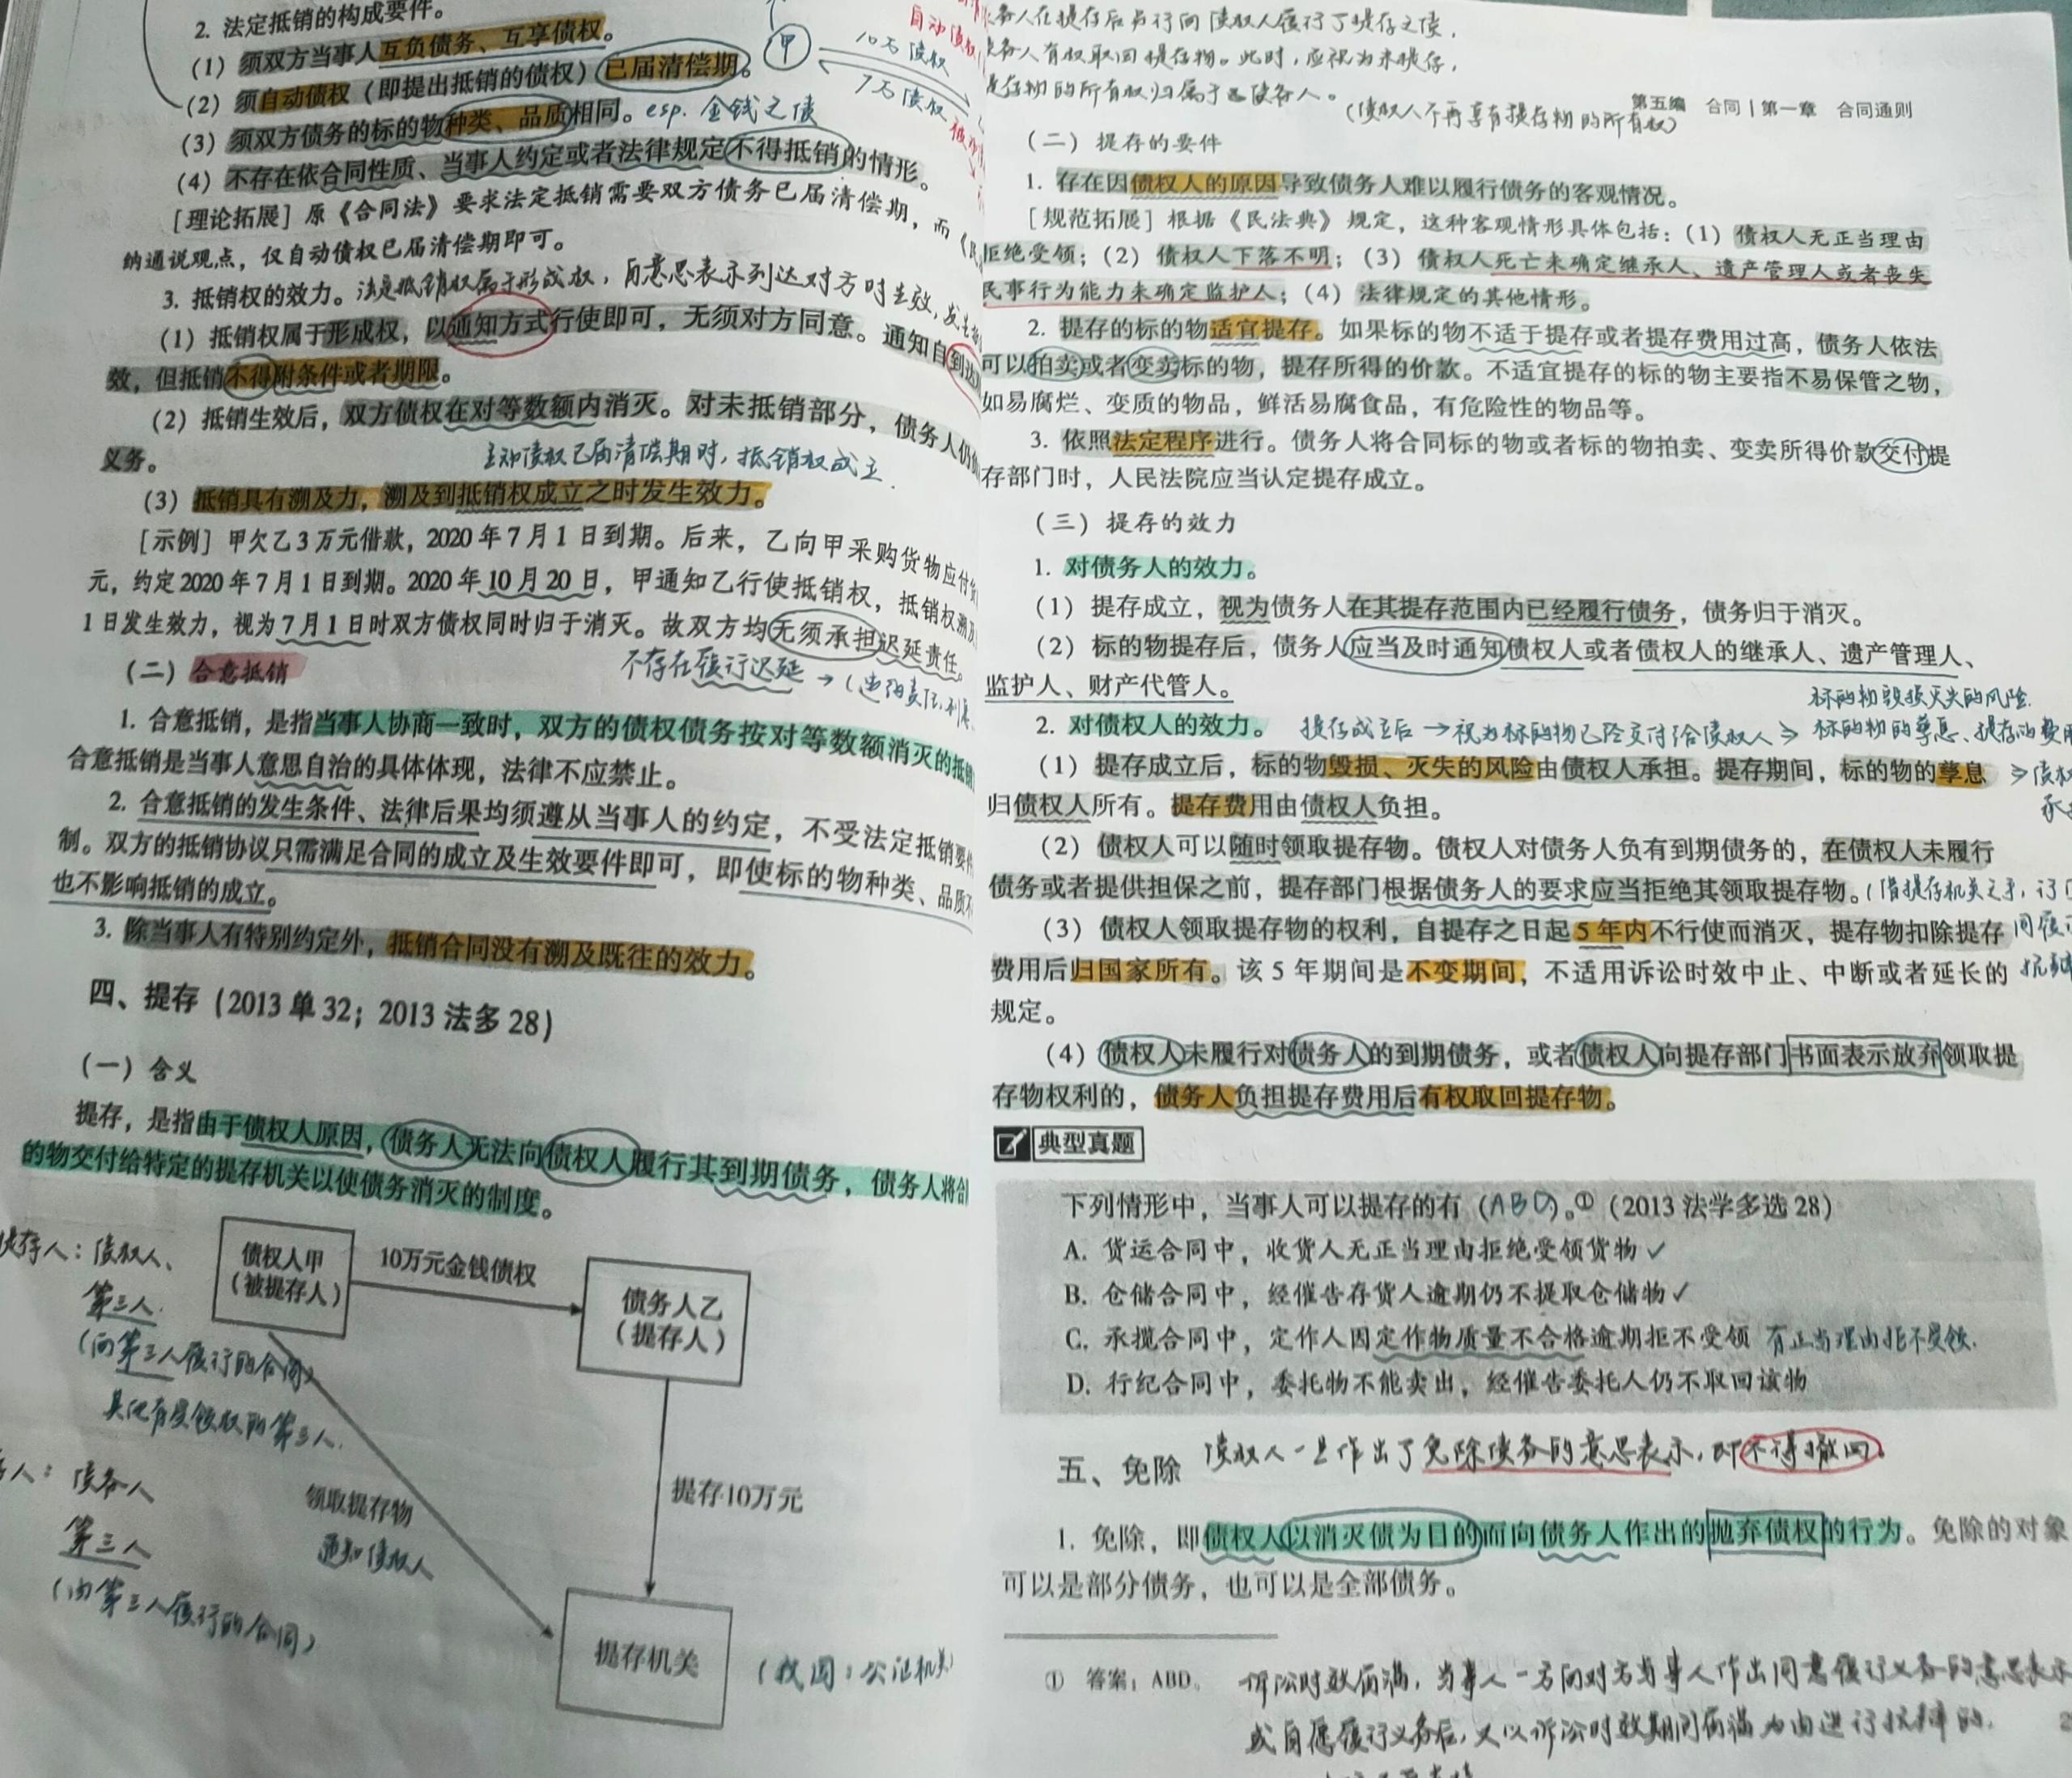 2. 法定抵销的构成要件。
(1) 须双方当事人互负债务、互享债权。
(2) 须自动债权（即提出抵销的债权）已届清偿期。
(3) 须双方债务的标的物种类、品质相同。esp. 金钱之债
(4) 不存在依合同性质、当事人约定或者法律规定不得抵销的情形。
甲
10万债权
7万债权
自动债权
[理论拓展] 原《合同法》要求法定抵销需要双方债务已届清偿期，而《民
纳通说观点，仅自动债权已届清偿期即可。
3. 抵销权的效力。法定抵销权属于形成权，自意思表示到达对方时生效，发生
(1) 抵销权属于形成权，以通知方式行使即可，无须对方同意。通知自到达
效，但抵销不得附条件或者期限。
(2) 抵销生效后，双方债权在对等数额内消灭。对未抵销部分，债务人仍
义务。
主动债权已届清偿期时，抵销权成立.
(3) 抵销具有溯及力，溯及到抵销权成立之时发生效力。
[示例] 甲欠乙3万元借款，2020年7月1日到期。后来，乙向甲采购货物应付
元，约定2020年7月1日到期。2020年10月20日，甲通知乙行使抵销权，抵销权溯及
1日发生效力，视为7月1日时双方债权同时归于消灭。故双方均无须承担迟延责任。
不存在履行迟延 →
(二) 合意抵销
1. 合意抵销，是指当事人协商一致时，双方的债权债务按对等数额消灭的抵销
合意抵销是当事人意思自治的具体体现，法律不应禁止。
2. 合意抵销的发生条件、法律后果均须遵从当事人的约定，不受法定抵销要件
制。双方的抵销协议只需满足合同的成立及生效要件即可，即使标的物种类、品质不
也不影响抵销的成立。
3. 除当事人有特别约定外，抵销合同没有溯及既往的效力。
四、提存（2013单32；2013法多28）
(一) 含义
提存，是指由于债权人原因，债务人无法向债权人履行其到期债务，债务人将合
的物交付给特定的提存机关以使债务消灭的制度。
提存人：债权人、
第三人.
(向第三人履行的合同)
其他有受领权的第三人.
存人：债务人
第三人
(由第三人履行的合同)
债权人甲
（被提存人）
10万元金钱债权
债务人乙
（提存人）
提存10万元
领取提存物
通知债权人
提存机关
(我国：公证机关)
务人在提存后另行向债权人履行了提存之债，
债务人有权取回提存物。此时，应视为未提存，
提存物的所有权归属于债务人。
(债权人不再享有提存物的所有权)
第五编 合同 | 第一章 合同通则
(二) 提存的要件
1. 存在因债权人的原因导致债务人难以履行债务的客观情况。
[规范拓展] 根据《民法典》规定，这种客观情形具体包括：(1) 债权人无正当理由
拒绝受领；(2) 债权人下落不明；(3) 债权人死亡未确定继承人、遗产管理人或者丧失
民事行为能力未确定监护人；(4) 法律规定的其他情形。
2. 提存的标的物适宜提存。如果标的物不适于提存或者提存费用过高，债务人依法
可以拍卖或者变卖标的物，提存所得的价款。不适宜提存的标的物主要指不易保管之物，
如易腐烂、变质的物品，鲜活易腐食品，有危险性的物品等。
3. 依照法定程序进行。债务人将合同标的物或者标的物拍卖、变卖所得价款交付提
存部门时，人民法院应当认定提存成立。
(三) 提存的效力
1. 对债务人的效力。
(1) 提存成立，视为债务人在其提存范围内已经履行债务，债务归于消灭。
(2) 标的物提存后，债务人应当及时通知债权人或者债权人的继承人、遗产管理人、
监护人、财产代管人。
标的物毁损灭失的风险.
2. 对债权人的效力。 提存成立后 → 视为标的物已经交付给债权人 ⇒ 标的物的孳息、提存的费用
(1) 提存成立后，标的物毁损、灭失的风险由债权人承担。提存期间，标的物的孳息
归债权人所有。提存费用由债权人负担。
(2) 债权人可以随时领取提存物。债权人对债务人负有到期债务的，在债权人未履行
债务或者提供担保之前，提存部门根据债务人的要求应当拒绝其领取提存物。(借提存机关之手，
(3) 债权人领取提存物的权利，自提存之日起5年内不行使而消灭，提存物扣除提存
费用后归国家所有。该5年期间是不变期间，不适用诉讼时效中止、中断或者延长的
规定。
(4) 债权人未履行对债务人的到期债务，或者债权人向提存部门书面表示放弃领取提
存物权利的，债务人负担提存费用后有权取回提存物。
典型真题
下列情形中，当事人可以提存的有（ABD）。①（2013法学多选28）
A. 货运合同中，收货人无正当理由拒绝受领货物 ✓
B. 仓储合同中，经催告存货人逾期仍不提取仓储物 ✓
C. 承揽合同中，定作人因定作物质量不合格逾期拒不受领 有正当理由拒不受领.
D. 行纪合同中，委托物不能卖出，经催告委托人仍不取回该物
五、免除 债权人一旦作出了免除债务的意思表示，即不得撤回。
1. 免除，即债权人以消灭债为目的而向债务人作出的抛弃债权的行为。免除的对象
可以是部分债务，也可以是全部债务。
① 答案：ABD。
诉讼时效届满，当事人一方向对方当事人作出同意履行义务的意思表示
或自愿履行义务后，又以诉讼时效期间届满为由进行抗辩的，